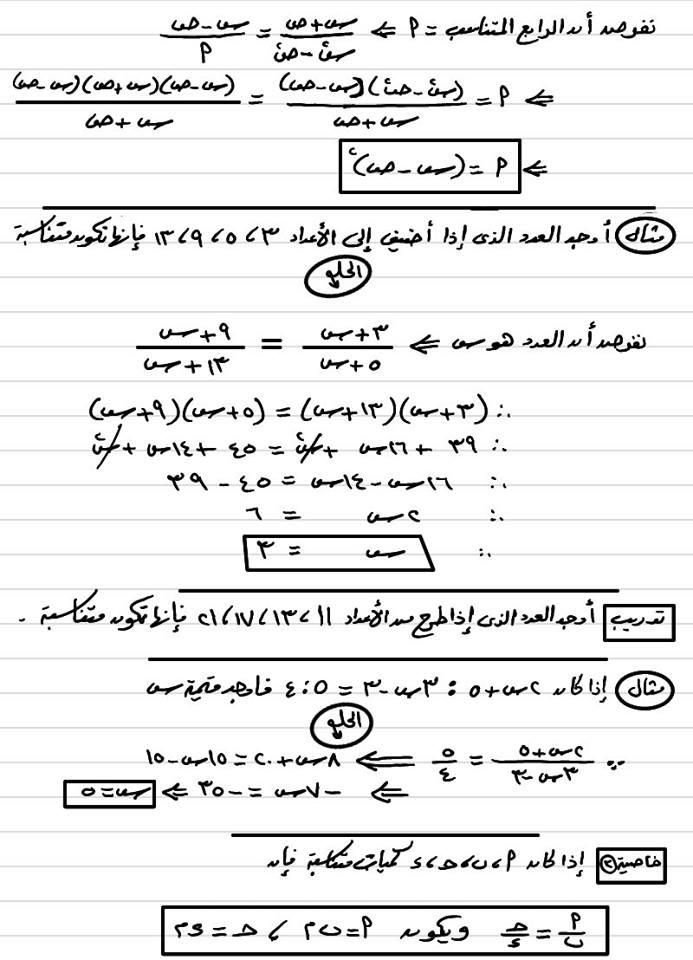 نفرض أن الرابع المتناسب = أ ⇐ (س+ص)/(س²-ص²) = (س-ص)/أ
⇐ أ = (س²-ص²)(س-ص)/(س+ص) = (س-ص)(س+ص)(س-ص)/(س+ص)
⇐ أ = (س-ص)²
مثال أوجد العدد الذى إذا أضيف إلى الأعداد ٣ ، ٥ ، ٩ ، ١٣ فإنها تكون متناسبة
الحل
نفرض أن العدد هو س ⇐ (٣+س)/(٥+س) = (٩+س)/(١٣+س)
∴ (٣+س)(١٣+س) = (٥+س)(٩+س)
∴ ٣٩ + ١٦س + س² = ٤٥ + ١٤س + س²
∴ ١٦س - ١٤س = ٤٥ - ٣٩
∴ ٢س = ٦
∴ س = ٣
تدريب أوجد العدد الذى إذا طرح من الأعداد ١١ ، ١٣ ، ١٧ ، ٢١ فإنها تكون متناسبة .
مثال إذا كان ٢س+٥ : ٣س-٣ = ٥ : ٤ فاوجد قيمة س
الحل
∵ (٢س+٥)/(٣س-٣) = ٥/٤ ⇐ ٨س+٢٠ = ١٥س-١٥
⇐ -٧س = -٣٥ ⇐ س=٥
خاصية (٢) إذا كان أ ، ب ، ح ، د كميات متناسبة فإن
أ/ب = ح/د ويكون أ = ب م ، ح = د م